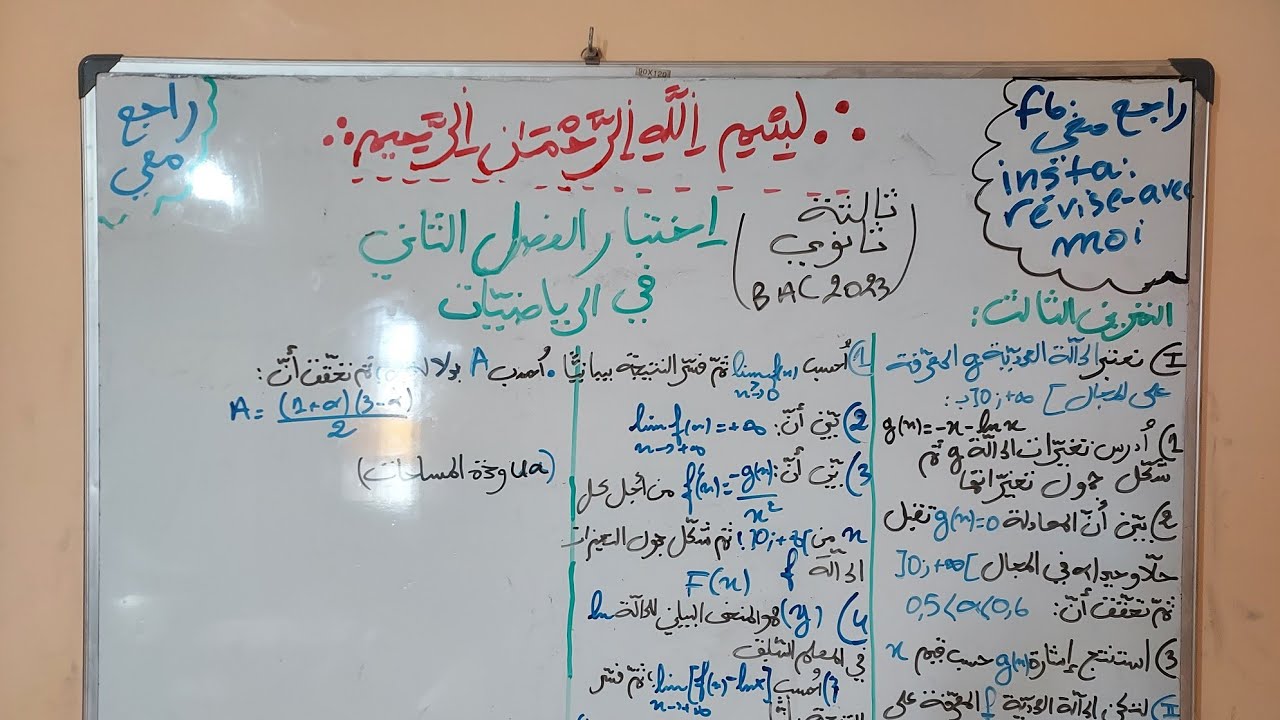 ∴ بسم الله الرحمان الرحيم ∴
راجع
معي
fb: راجع
معي
insta:
revise-avec
moi
ثالثة
ثانوي
(BAC 2023)
إختبار الفصل الثاني
في الرياضيات
التمرين الثالث:
I) نعتبر الدالة العددية g المعرفة
على المجال ]0;+∞[ بـ:
g(x)=-x-lnx
1) أدرس تغيّرات الدالة g ثم
شكّل جدول تغيّراتها
2) بيّن أنّ المعادلة g(x)=0 تقبل
حلّا وحيدا α في المجال ]0;+∞[
ثمّ تحقّق أنّ: 0,5<α<0,6
3) استنتج إشارة g(x) حسب قيم x
II) لتكن الدالة العددية f المعرفة على
1) أحسب lim f(x) ثمّ فسّر النتيجة بيانيًّا
x→0
2) بيّن أنّ: lim f(x)=+∞
x→+∞
3) بيّن أنّ: f'(x)=-g(x)/x² من أجل كل
x من ]0;+∞[ ثم شكّل جدول التغيرات
الدالّة f
F(x)
4) (γ) هو المنحنى البياني للدالّة ln
في المعلم السّابق
أحسب lim[f(x)-lnx] ثمّ فسّر
x→+∞
النتيجة
• أحسب A بدلالة α ثم تحقّق أنّ:
A=(1+α)(3-α)/2
(ua وحدة المساحات)